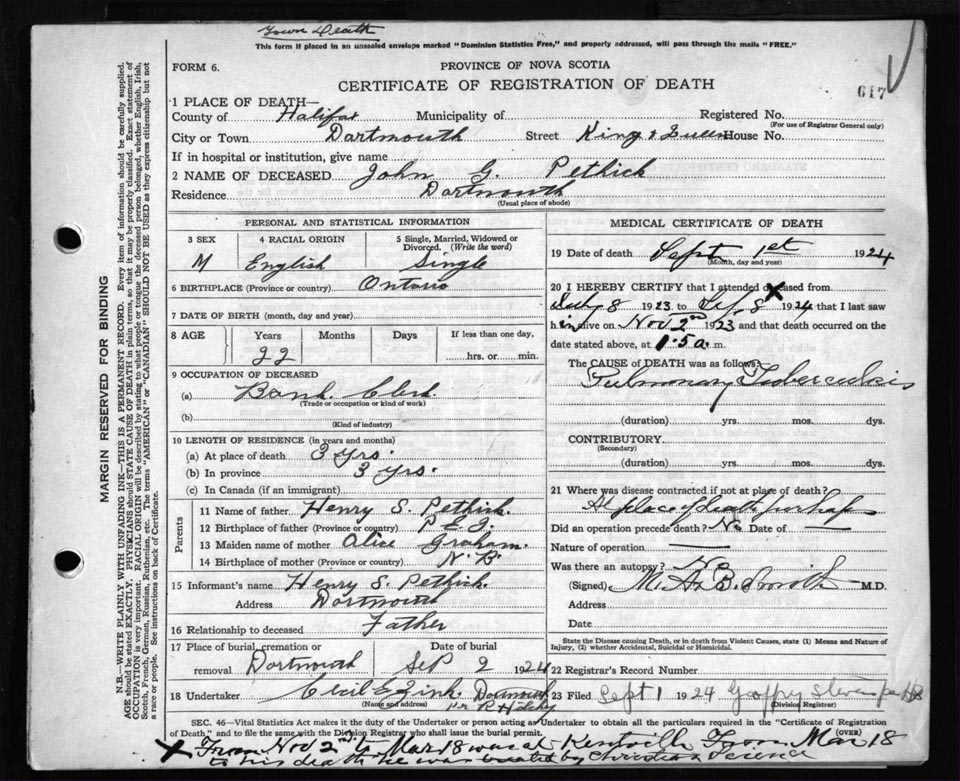 Town Death
This form if placed in an unsealed envelope marked "Dominion Statistics Free," and properly addressed, will pass through the mails "FREE."
FORM 6.
PROVINCE OF NOVA SCOTIA
CERTIFICATE OF REGISTRATION OF DEATH
617
1 PLACE OF DEATH—
County of Halifax Municipality of Registered No.
(For use of Registrar General only)
City or Town Dartmouth Street King & Queen House No.
If in hospital or institution, give name
2 NAME OF DECEASED John G. Pethick
Residence Dartmouth
(Usual place of abode)
PERSONAL AND STATISTICAL INFORMATION
3 SEX 4 RACIAL ORIGIN 5 Single, Married, Widowed or Divorced. (Write the word)
M English Single
6 BIRTHPLACE (Province or country) Ontario
7 DATE OF BIRTH (month, day and year)
8 AGE Years Months Days If less than one day,
22 hrs. or min.
9 OCCUPATION OF DECEASED
(a) Bank Clerk
(Trade or occupation or kind of work)
(b)
(Kind of industry)
10 LENGTH OF RESIDENCE (in years and months)
(a) At place of death 3 yrs.
(b) In province 3 yrs.
(c) In Canada (if an immigrant)
Parents
11 Name of father Henry S. Pethick.
12 Birthplace of father (Province or country) P.E.I.
13 Maiden name of mother Alice Graham.
14 Birthplace of mother (Province or country) N.B.
15 Informant's name Henry S. Pethick.
Address Dartmouth
16 Relationship to deceased Father
17 Place of burial, cremation or removal Dartmouth Date of burial Sep 2 1924
18 Undertaker Cecil E. Zink. Dartmouth
(Name and address)
MEDICAL CERTIFICATE OF DEATH
19 Date of death Sept 1st 1924
(Month, day and year)
20 I HEREBY CERTIFY that I attended deceased from
July 8 1923 to 8 1924 that I last saw
h im alive on Nov 2nd 1923 and that death occurred on
date stated above, at 1.5 a. m.
The CAUSE OF DEATH was as follows:
Pulmonary Tuberculosis
(duration) yrs. mos. dys.
CONTRIBUTORY
(Secondary)
(duration) yrs. mos. dys.
21 Where was disease contracted if not at place of death?
At place of death perhaps
Did an operation precede death? No Date of —
Nature of operation —
Was there an autopsy? No
(Signed) M. A. B. Smith M.D.
Address
Date
State the Disease causing Death, or in death from Violent Causes, state (1) Means and Nature of Injury, (2) whether Accidental, Suicidal or Homicidal.
22 Registrar's Record Number
23 Filed Sept 1 1924
(Division Registrar)
SEC. 46—Vital Statistics Act makes it the duty of the Undertaker or person acting as Undertaker to obtain all the particulars required in the "Certificate of Registration
of Death," and to file same with the Division Registrar who shall issue the burial permit.
(OVER)
X From Nov 2nd to Mar 18 was at Kentville From Mar 18
to his death he was treated by Christian Science
MARGIN RESERVED FOR BINDING
N.B.—WRITE PLAINLY WITH UNFADING INK—THIS IS A PERMANENT RECORD. Every item of information should be carefully supplied.
AGE should be stated EXACTLY. PHYSICIANS should STATE CAUSE OF DEATH in plain terms, so that it may be properly classified. Exact statement of
OCCUPATION is very important. RACIAL ORIGIN will be described by stating to what people or tongue the deceased person belonged, whether English, Irish,
Scotch, French, German, Russian, Ruthenian, etc. The terms "AMERICAN" or "CANADIAN" SHOULD NOT BE USED as they express citizenship but not
a race or people. See instructions on back of Certificate.